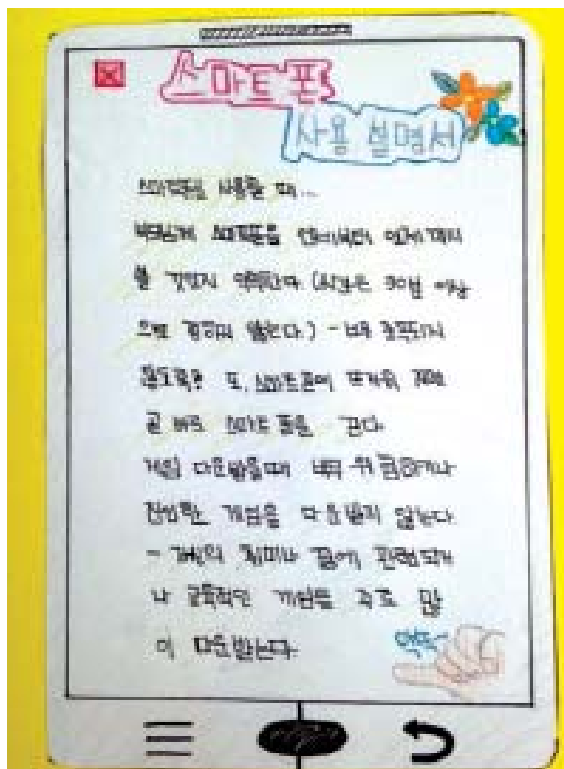 스마트폰
사용 설명서
스마트폰을 사용할 때...
부모님께 스마트폰을 언제부터 언제까지
쓸 것인지 약속한다 (시간은 30분 이상
으로 정하지 않는다.) - 너무 중독되지
않도록! 또, 스마트폰이 뜨거워 지면
곧 바로 스마트 폰을 끈다.
게임 다운받을때 너무 위험하거나
잔인한 게임을 다운받지 않는다.
- 개인의 취미나 꿈에 관련되거
나 교육적인 게임을 주로 많
이 다운받는다.
약속~